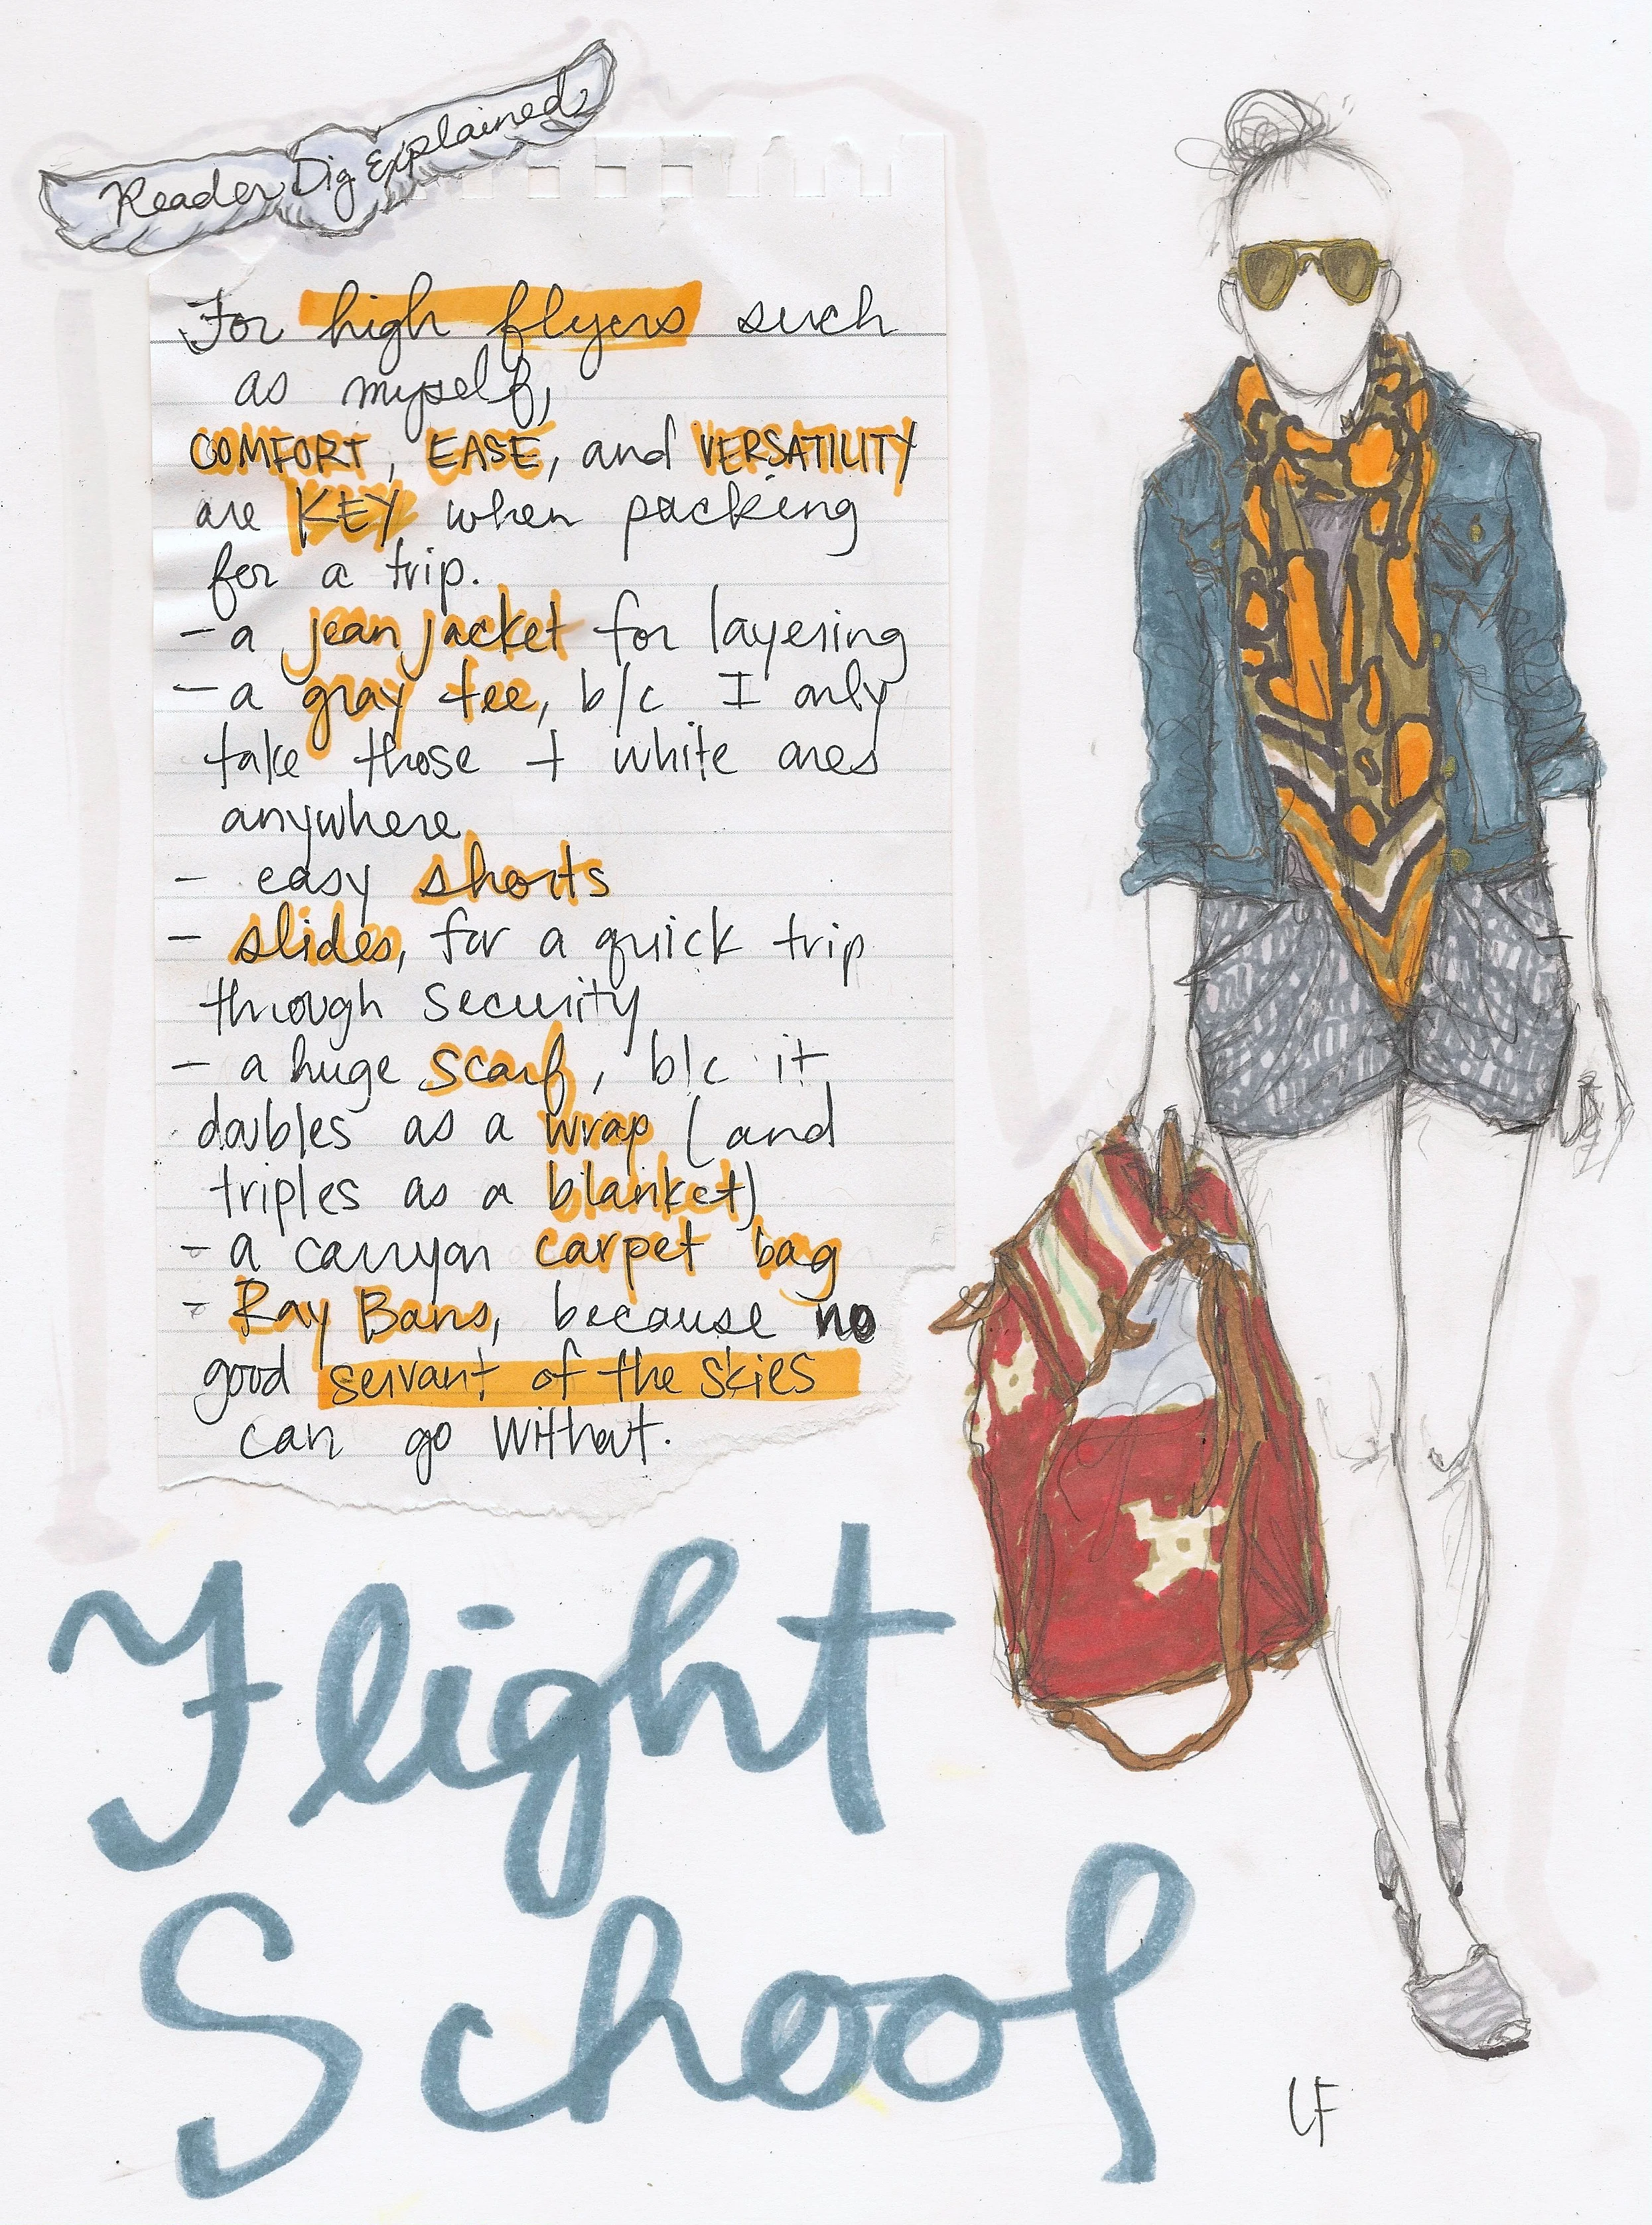 Reader Dig Explained
For high flyers such
as myself,
COMFORT, EASE, and VERSATILITY
are KEY when packing
for a trip.
- a jean jacket for layering
- a gray tee, b/c I only
take those + white ones
anywhere
- easy shorts
- slides, for a quick trip
through security
- a huge scarf, b/c it
doubles as a wrap (and
triples as a blanket)
- a carryon carpet bag
- Ray Bans, because no
good servant of the skies
can go without.
Flight
School
LF